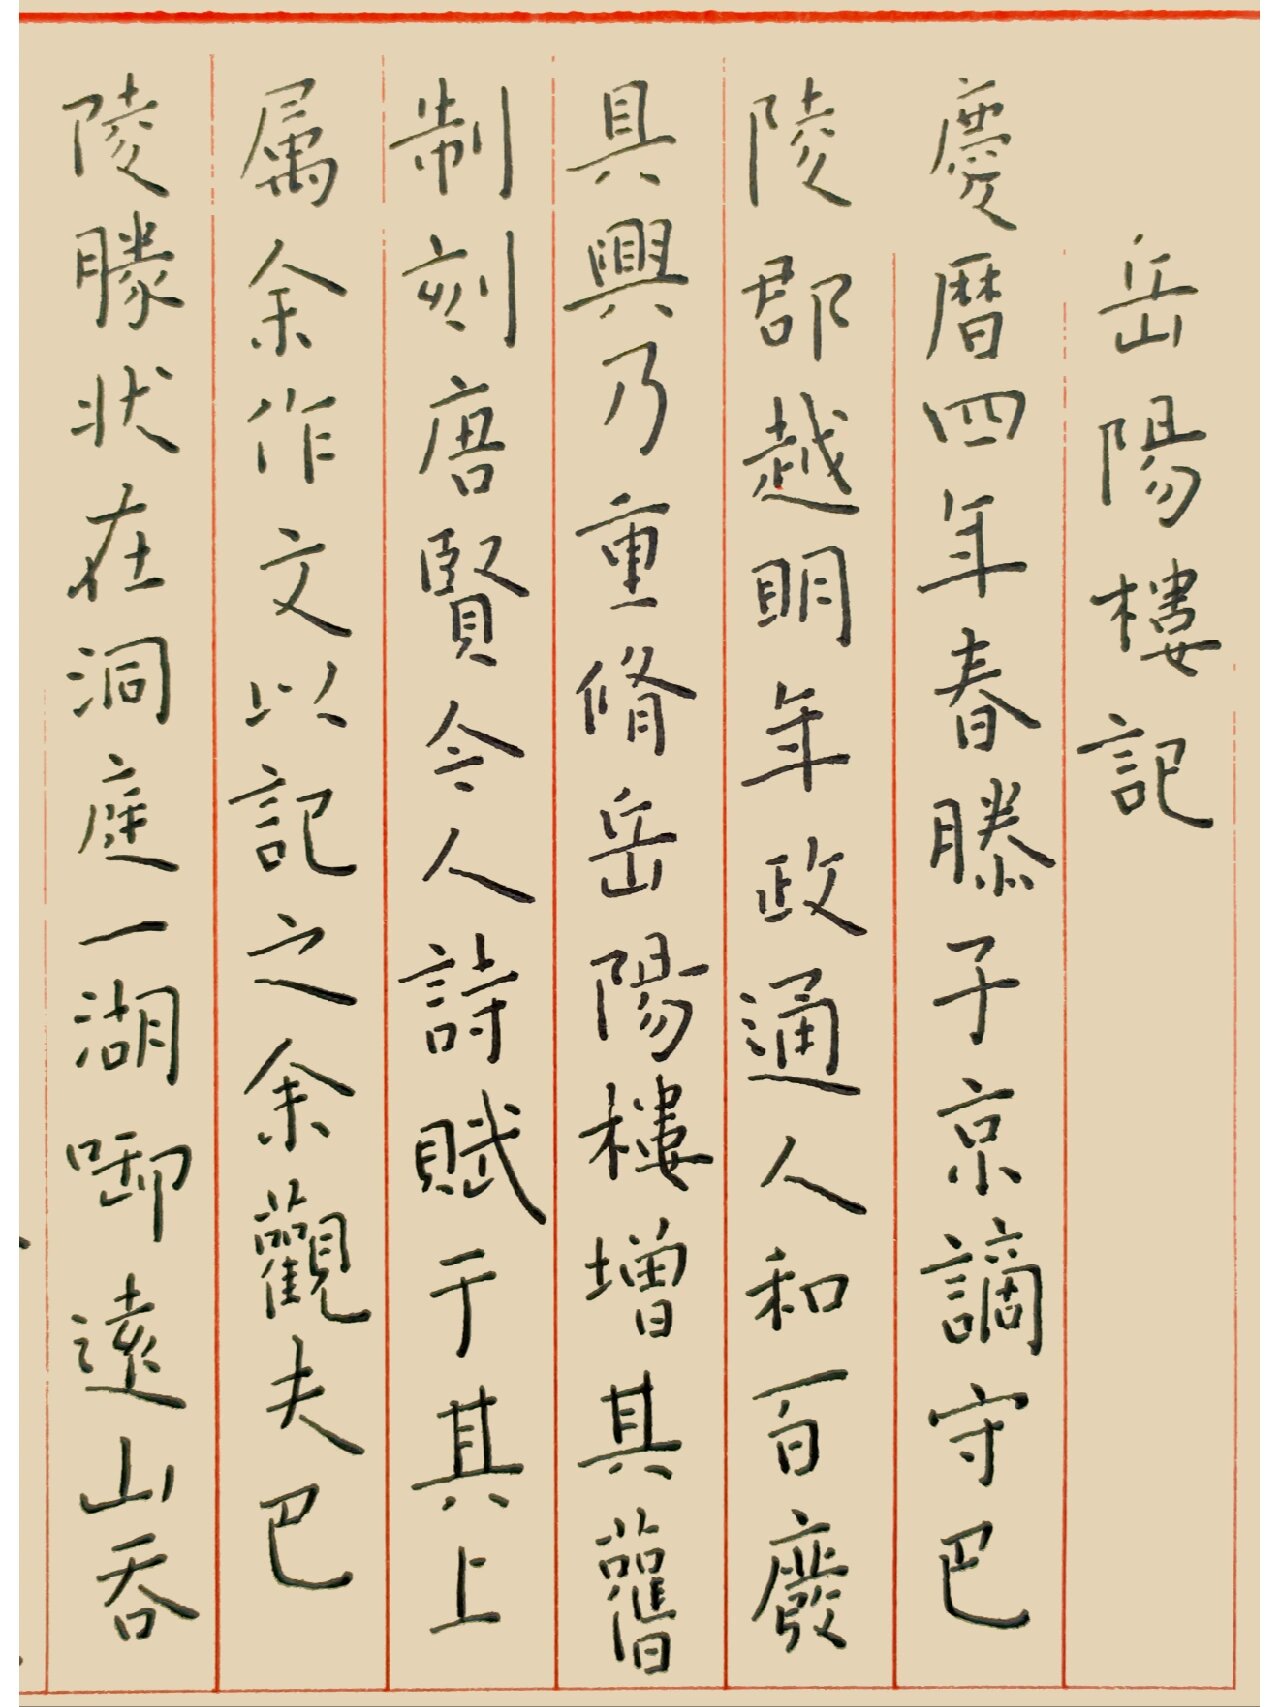 岳陽樓記
慶暦四年春滕子京謫守巴
陵郡越明年政通人和百廢
具興乃重脩岳陽樓增其舊
制刻唐賢今人詩賦于其上
属余作文以記之余觀夫巴
陵勝状在洞庭一湖啣遠山吞